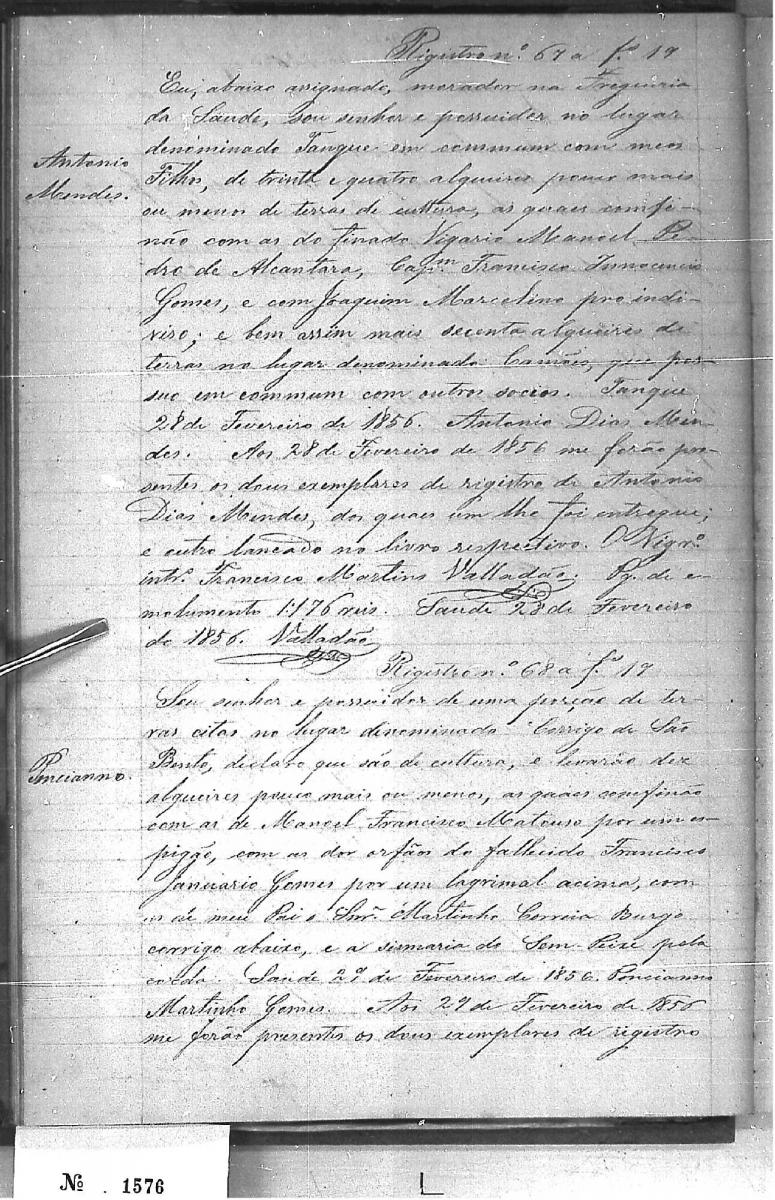 Registro nº 67 a fº 19
Eu, abaixo assignado, morador na Freguesia
da Saude, sou senhor e possuidor no lugar
denominado Tanque em commum com meos
Antonio
Mendes.
Filhos, de trinta e quatro alqueires pouco mais
ou menos de terras de cultura, as quaes confi-
não com as do finado Vigario Manoel Pe-
dro de Alcantara, Capm. Francisco Innocencio
Gomes, e com Joaquim Marcelino pro indi-
viso; e bem assim mais secenta alqueires de
terras no lugar denominado Camões, que pos-
suo em commum com outros socios. Tanque
28 de Fevereiro de 1856. Antonio Dias Men-
des. Aos 28 de Fevereiro de 1856 me forão pre-
sentes os dous exemplares de registro de Antonio
Dias Mendes, dos quaes um lhe foi entregue;
e outro lancado no livro respectivo. O Vigrº.
intº. Francisco Martins Valladão. Pg. de e-
molumento 1:176 reis. Saude 28 de Fevereiro
de 1856. Valladão
Registro nº 68 a fº 19
Sou senhor e possuidor de uma porção de ter-
ras citas no lugar denominado Corrigo de São
Poncianno.
Bento, declaro que são de cultura, e levarão dez
alqueires pouco mais ou menos, as quaes confinão
com as de Manoel Francisco Matouso por um es-
pigão, com as dos orfãos do fallecido Francisco
Januario Gomes por um lagrimal acima, com
as de meu Pai o Snrº. Martinho Correia Burgo
corrigo abaixo, e a sismaria do Sem-Peixe pela
Saude 29 de Fevereiro de 1856. Poncianno
Martinho Gomes. Aos 29 de Fevereiro de 1856
me forão presentes os dous exemplares de registro
Nº . 1576